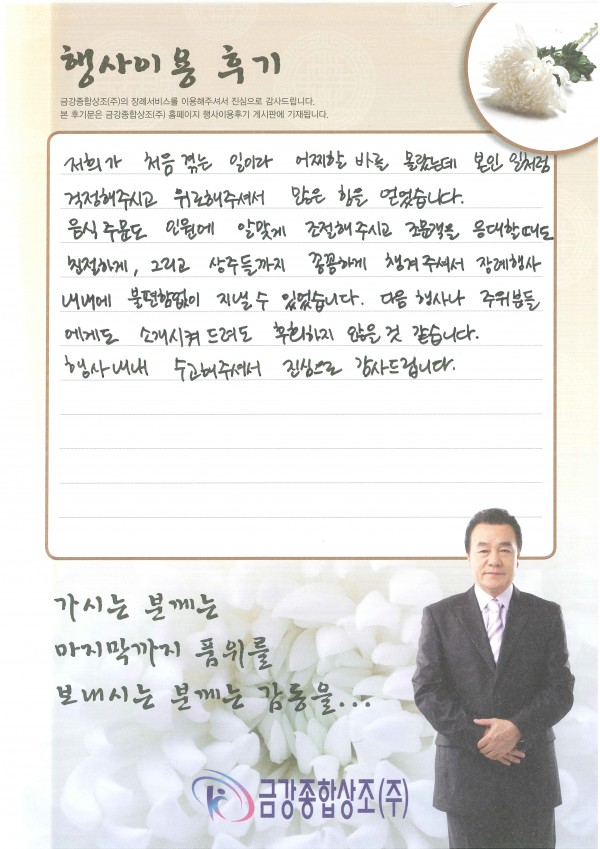 행사이용 후기
금강종합상조(주)의 장례서비스를 이용해주셔서 진심으로 감사드립니다.
본 후기문은 금강종합상조(주) 홈페이지 행사이용후기 게시판에 기재됩니다.
저희가 처음 겪는 일이라 어찌할 바를 몰랐는데 본인 일처럼
걱정해주시고 위로해주셔서 많은 힘을 얻었습니다.
음식 주문도 인원에 알맞게 조절해주시고 조문객을 응대할때도
친절하게, 그리고 상주들까지 꼼꼼하게 챙겨주셔서 장례행사
내내에 불편함없이 지낼 수 있었습니다. 다음 행사나 주위분들
에게도 소개시켜 드려도 후회하지 않을 것 같습니다.
행사내내 수고해주셔서 진심으로 감사드립니다.
가시는 분께는
마지막까지 품위를
보내시는 분께는 감동을...
금강종합상조(주)